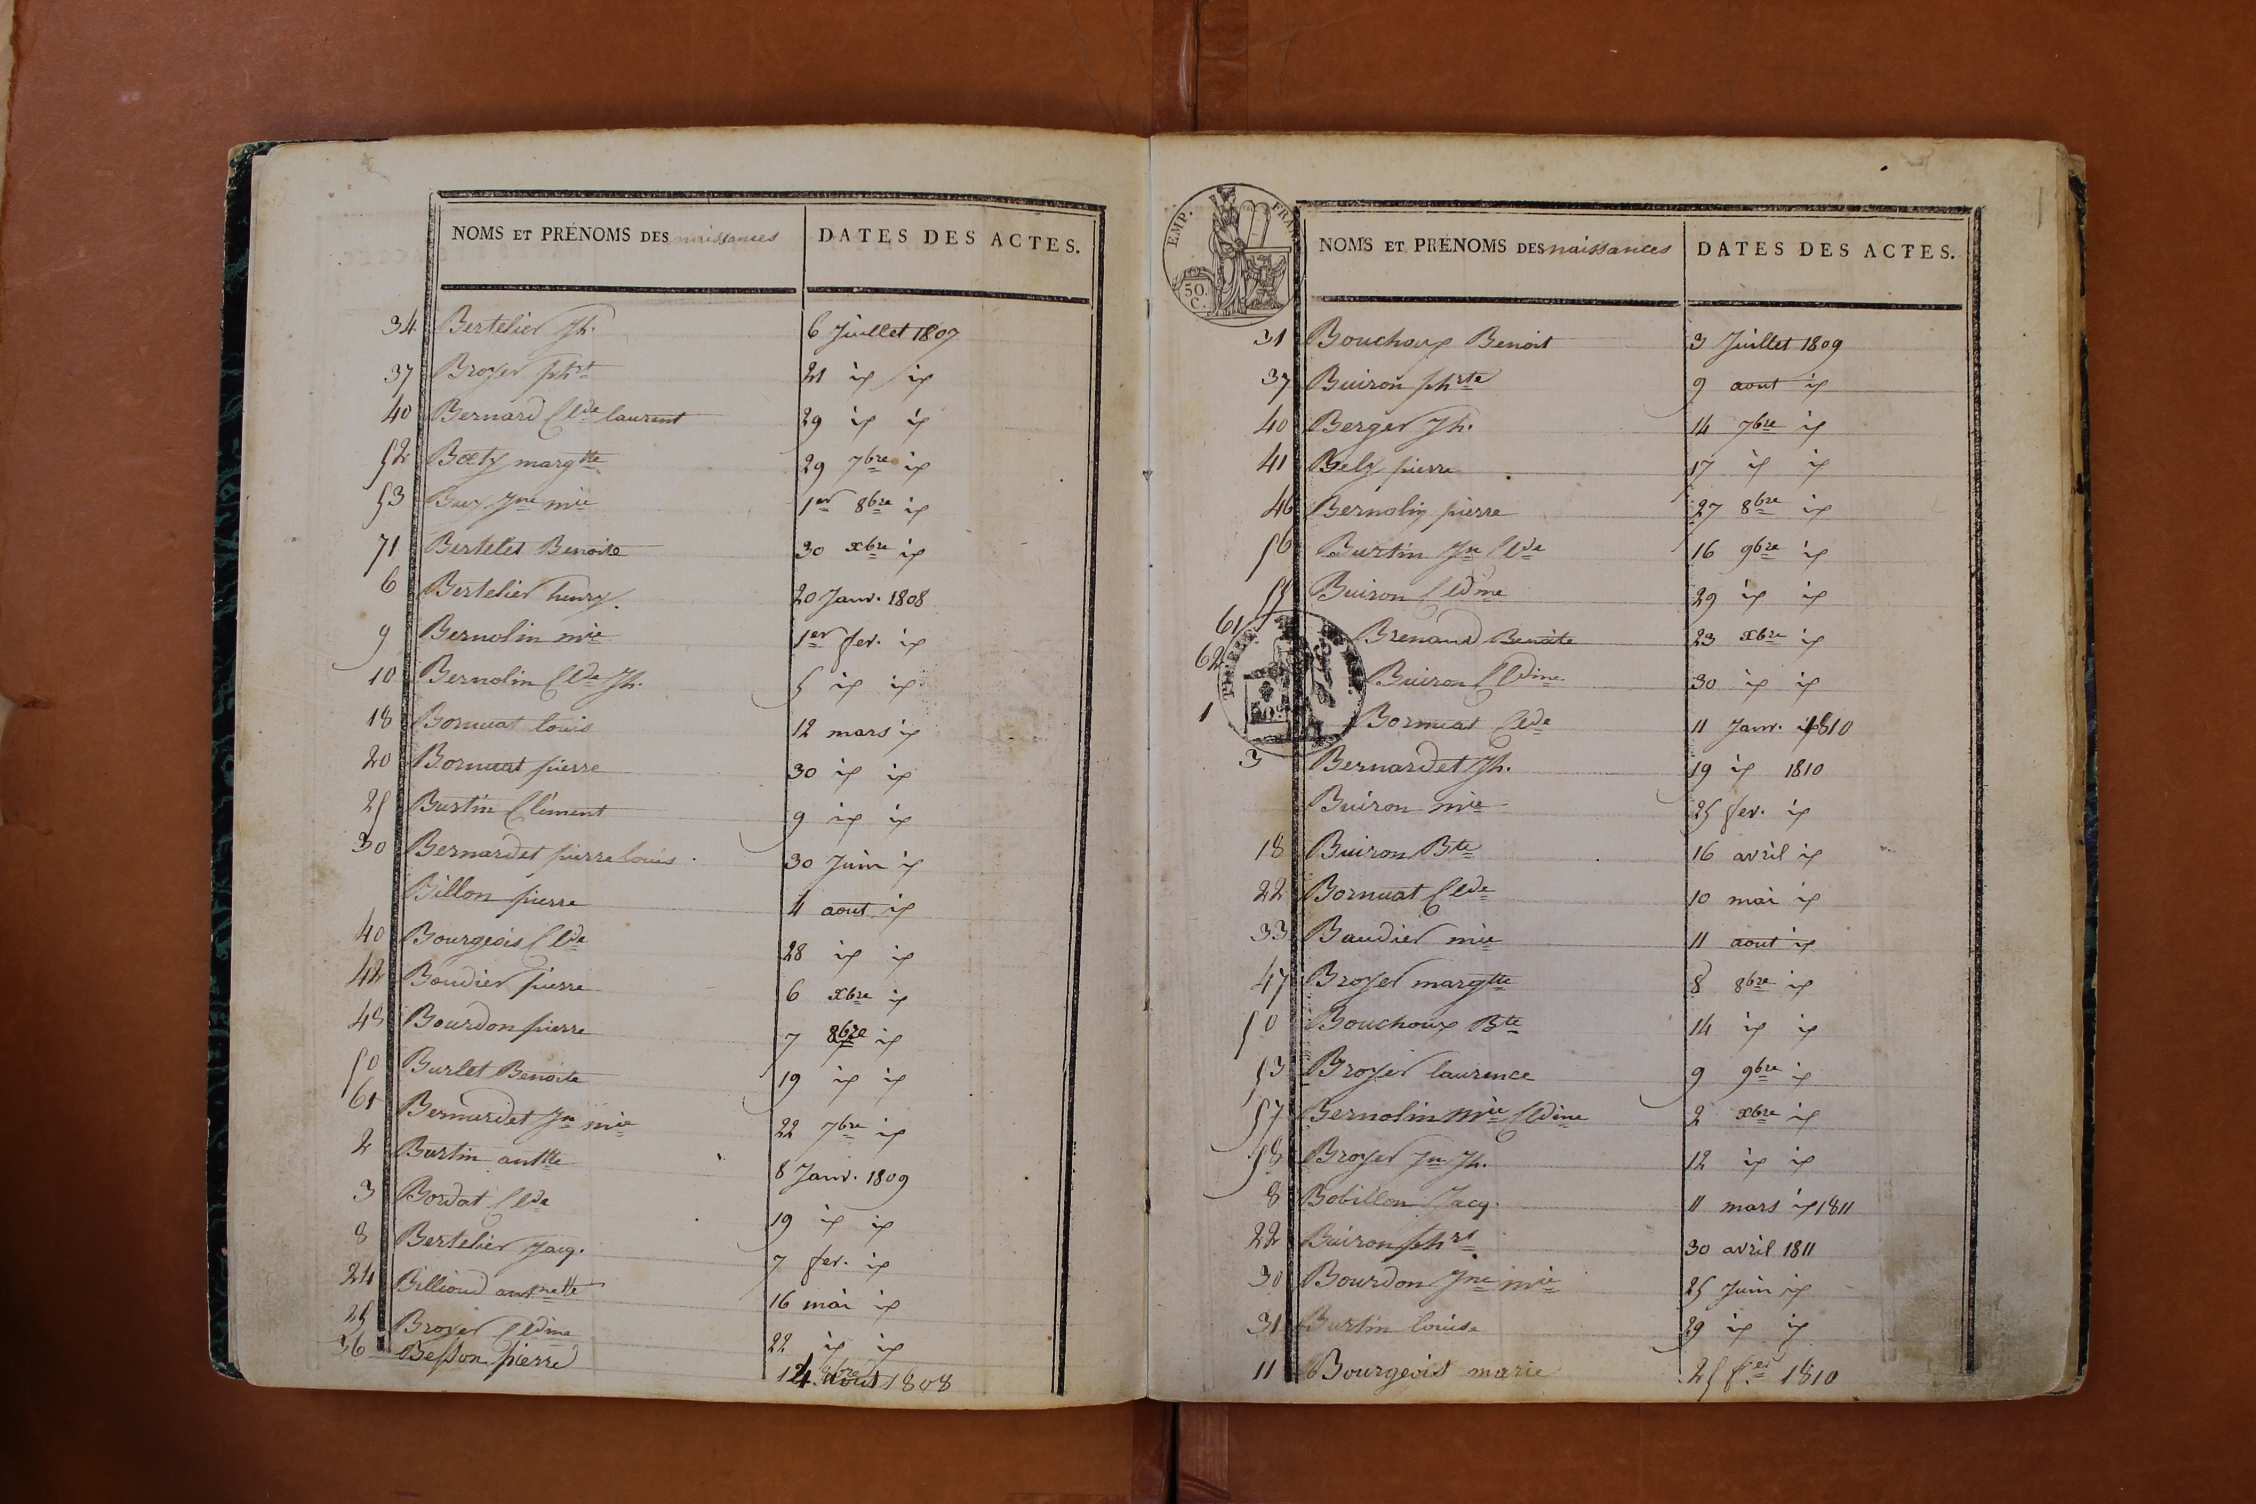 NOMS ET PRÉNOMS DES naissances DATES DES ACTES.
34 Bertelier Jh. 6 Juillet 1807
37 Broyer phrt 21 id id
40 Bernard Clde laurent 29 id id
52 Boety margtte 29 7bre id
53 Buy Jne mie 1er 8bre id
71 Bertelet Benoite 30 xbre id
6 Bertelier henry. 20 Janv. 1808
9 Bernolin mie 1er fev. id
10 Bernolin Clde Jh. 5 id id
18 Bornuat louis 12 mars id
20 Bornuat pierre 30 id id
25 Burtin Clément 9 id id
30 Bernardet pierre louis 30 Juin id
Billon pierre 4 aout id
40 Bourgeois Clde 28 id id
42 Boudier pierre 6 xbre id
45 Bourdon pierre 7 8bre id
50 Burlet Benoite 19 id id
61 Bernardet Jn mie 22 7bre id
2 Burtin anttte 8 Janv. 1809
3 Bordat Clde 19 id id
8 Bertelier Jacq. 7 fev. id
24 Billioud antnette 16 mai id
25 Broyer Cldine 22 id id
36 Besson pierre 1808
EMP. FRAN
50. C.
NOMS ET PRÉNOMS DES naissances DATES DES ACTES.
31 Bouchoux Benoit 3 Juillet 1809
37 Buiron phrte 9 aout id
40 Berger Jh. 14 7bre id
41 Bely pierre 17 id id
46 Bernolin pierre 27 8bre id
56 Burtin Jn Clde 16 9bre id
Buiron Cldine 29 id id
61 Brenaud Benoite 23 xbre id
62 Buiron Cldine 30 id id
1 Bornuat Clde 11 Janv. 1810
3 Bernardet Jh. 19 id 1810
Buiron mie 25 fev. id
18 Buiron Bte 16 avril id
22 Bornuat Clde 10 mai id
33 Baudier mie 11 aout id
47 Broyer margtte 8 8bre id
50 Bouchoux Bte 14 id id
53 Broyer laurence 9 9bre id
57 Bernolin mie Cldine 2 xbre id
58 Broyer Jn Jh. 12 id id
8 Bobillon Jacq. 11 mars id 1811
22 Buiron phrt 30 avril 1811
30 Bourdon Jne mie 25 Juin id
31 Burtin louise 29 id id
11 Bourgeois marie 25 fer 1810